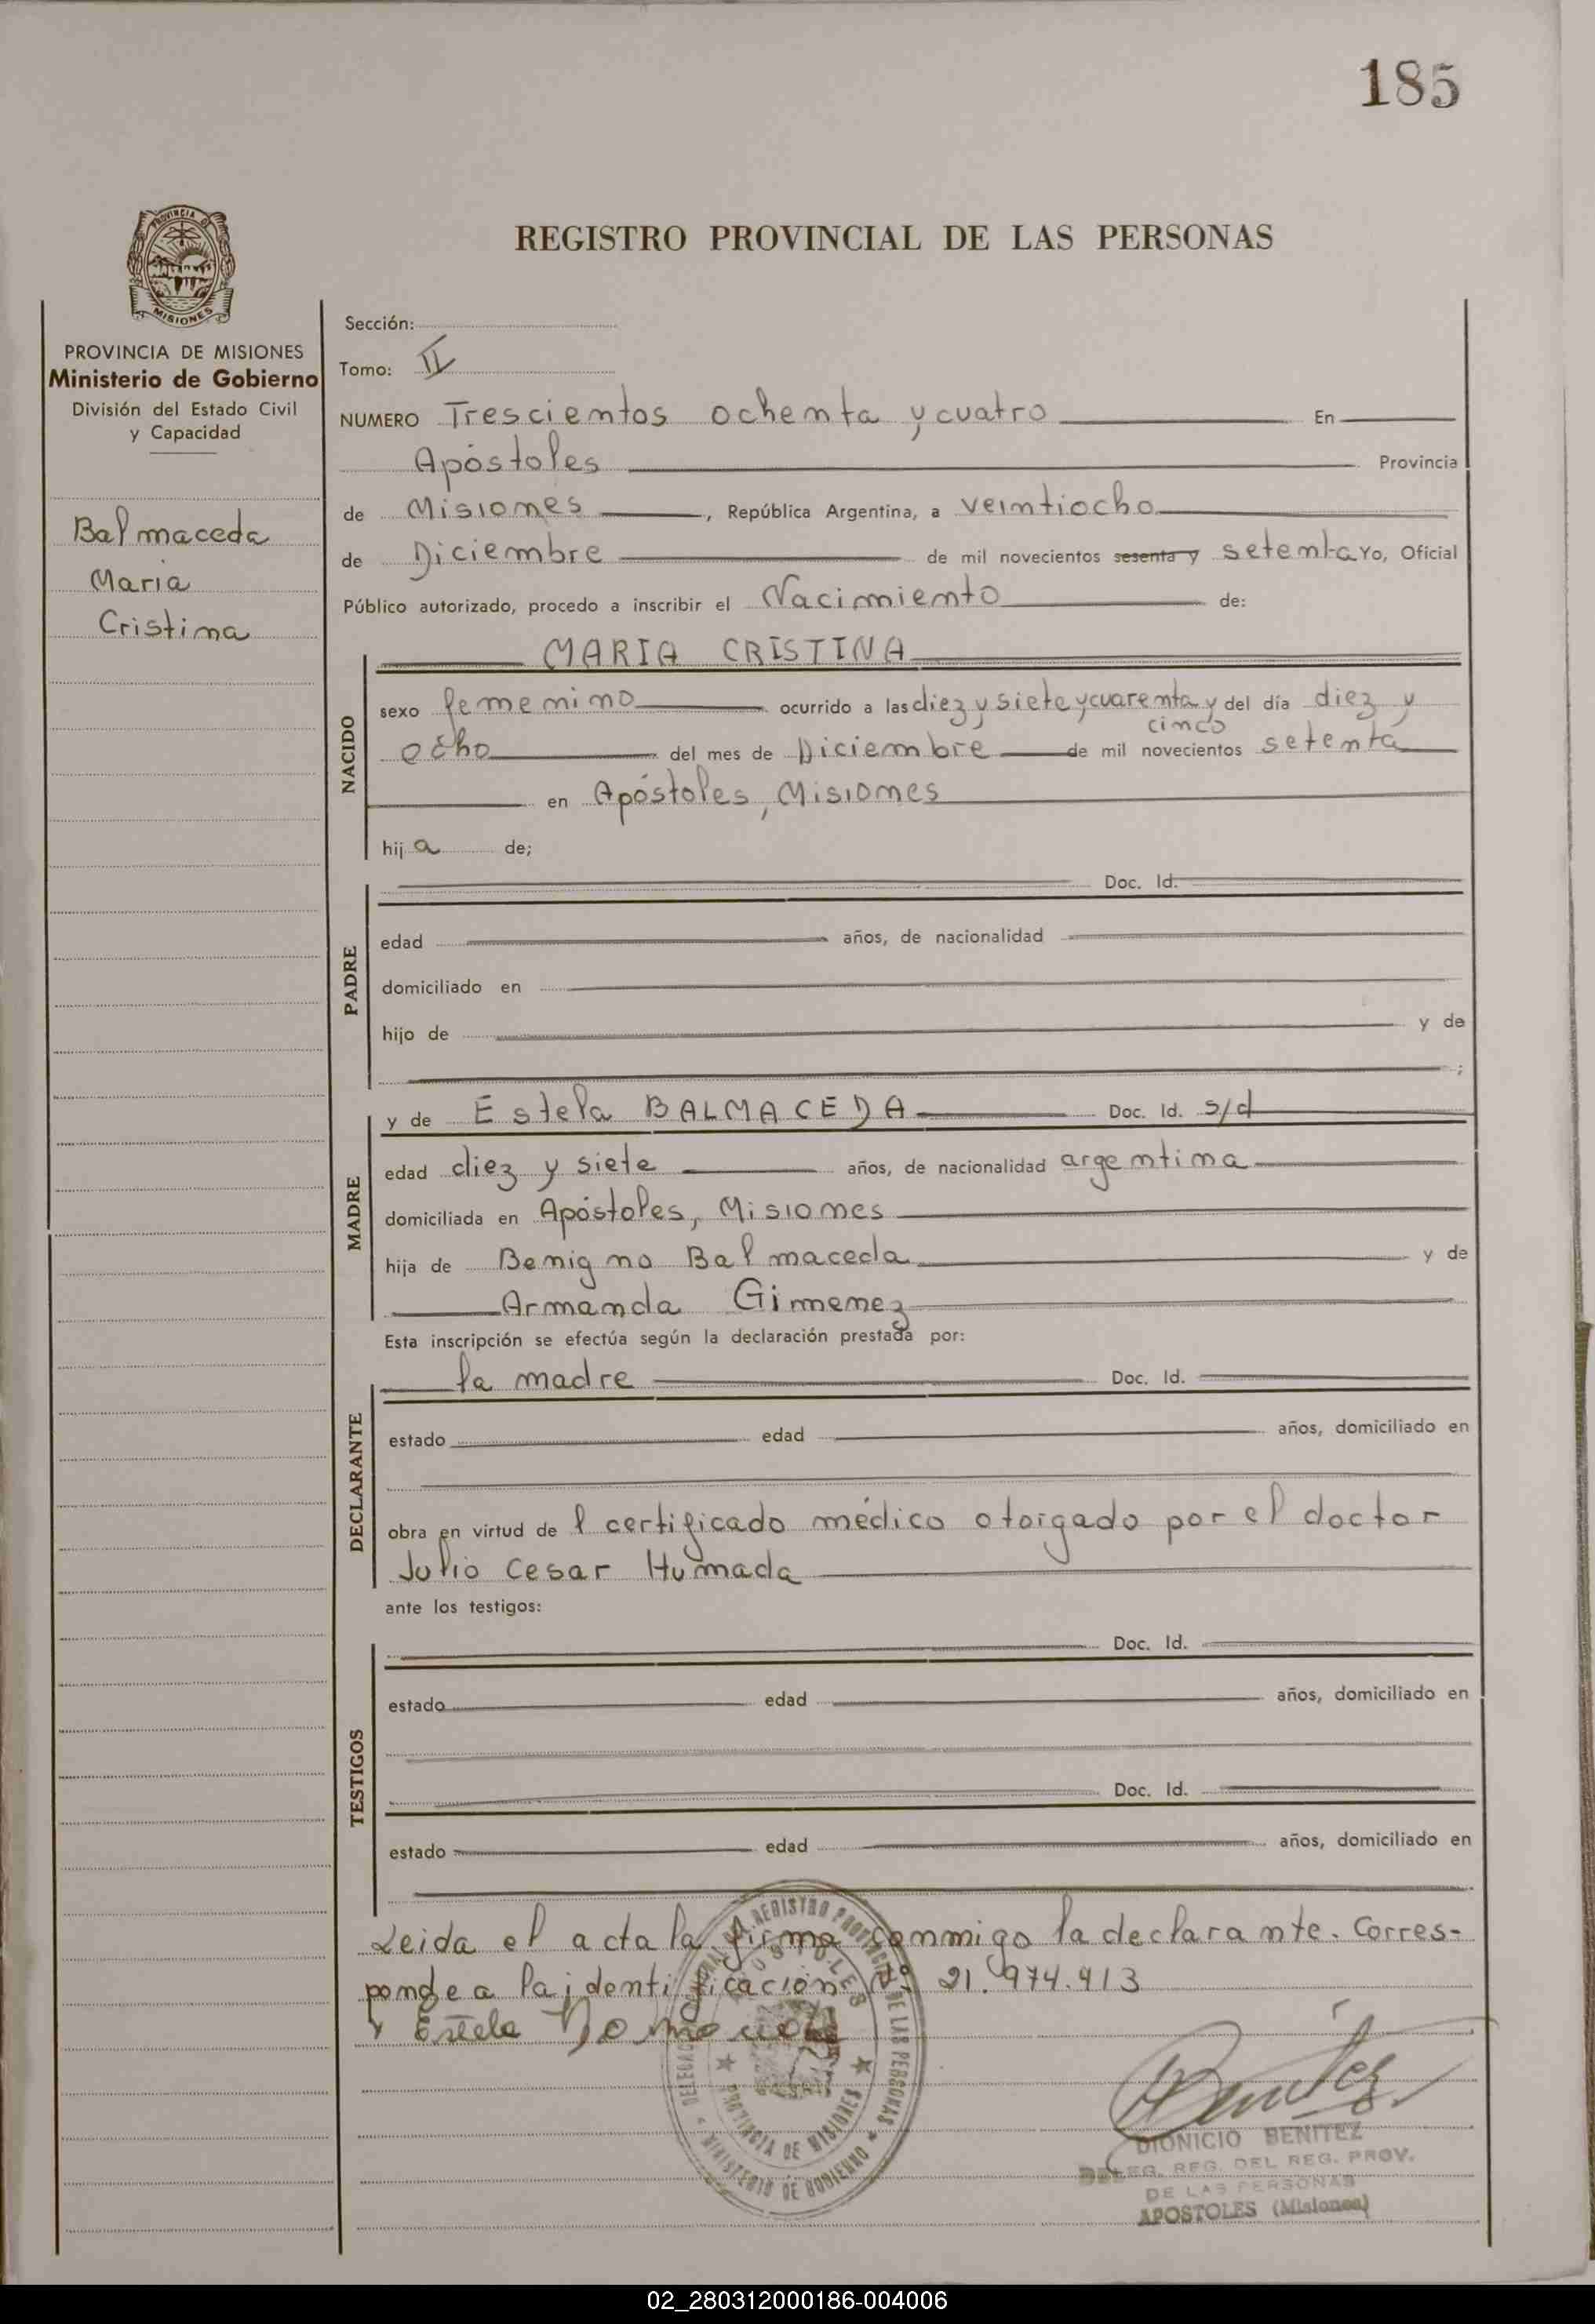 185
PROVINCIA DE
MISIONES
REGISTRO PROVINCIAL DE LAS PERSONAS
PROVINCIA DE MISIONES
Ministerio de Gobierno
División del Estado Civil
y Capacidad
Balmaceda
Maria
Cristina
Sección:
Tomo: II
NUMERO Trescientos ochenta y cuatro En
Apóstoles Provincia
de Misiones, República Argentina, a veintiocho
de Diciembre de mil novecientos sesenta y setenta Yo, Oficial
Público autorizado, procedo a inscribir el Nacimiento de:
NACIDO
MARIA CRISTINA
sexo femenino ocurrido a las diez y siete y cuarenta y del día diez y
cinco
ocho del mes de Diciembre de mil novecientos setenta
en Apóstoles, Misiones
hij a de;
PADRE
Doc. Id.
edad años, de nacionalidad
domiciliado en
hijo de y de
;
MADRE
y de Estela BALMACEDA Doc. Id. s/d
edad diez y siete años, de nacionalidad argentina
domiciliada en Apóstoles, Misiones
hija de Benigno Balmaceda y de
Armanda Gimenez
Esta inscripción se efectúa según la declaración prestada por:
DECLARANTE
la madre Doc. Id.
estado edad años, domiciliado en
obra en virtud de l certificado médico otorgado por el doctor
Julio Cesar Humada
ante los testigos:
TESTIGOS
Doc. Id.
estado edad años, domiciliado en
Doc. Id.
estado edad años, domiciliado en
Leida el acta la firma conmigo la declarante. Corres-
ponde a la identificación Nº 21.974.413
Estela
REGISTRO PROVINCIAL DE LAS PERSONAS
APOSTOLES
PROVINCIA DE MISIONES
MINISTERIO DE GOBIERNO
Benitez
DIONICIO BENITEZ
DELEG. REG. DEL REG. PROV.
DE LAS PERSONAS
APOSTOLES (Misiones)
02_280312000186-004006